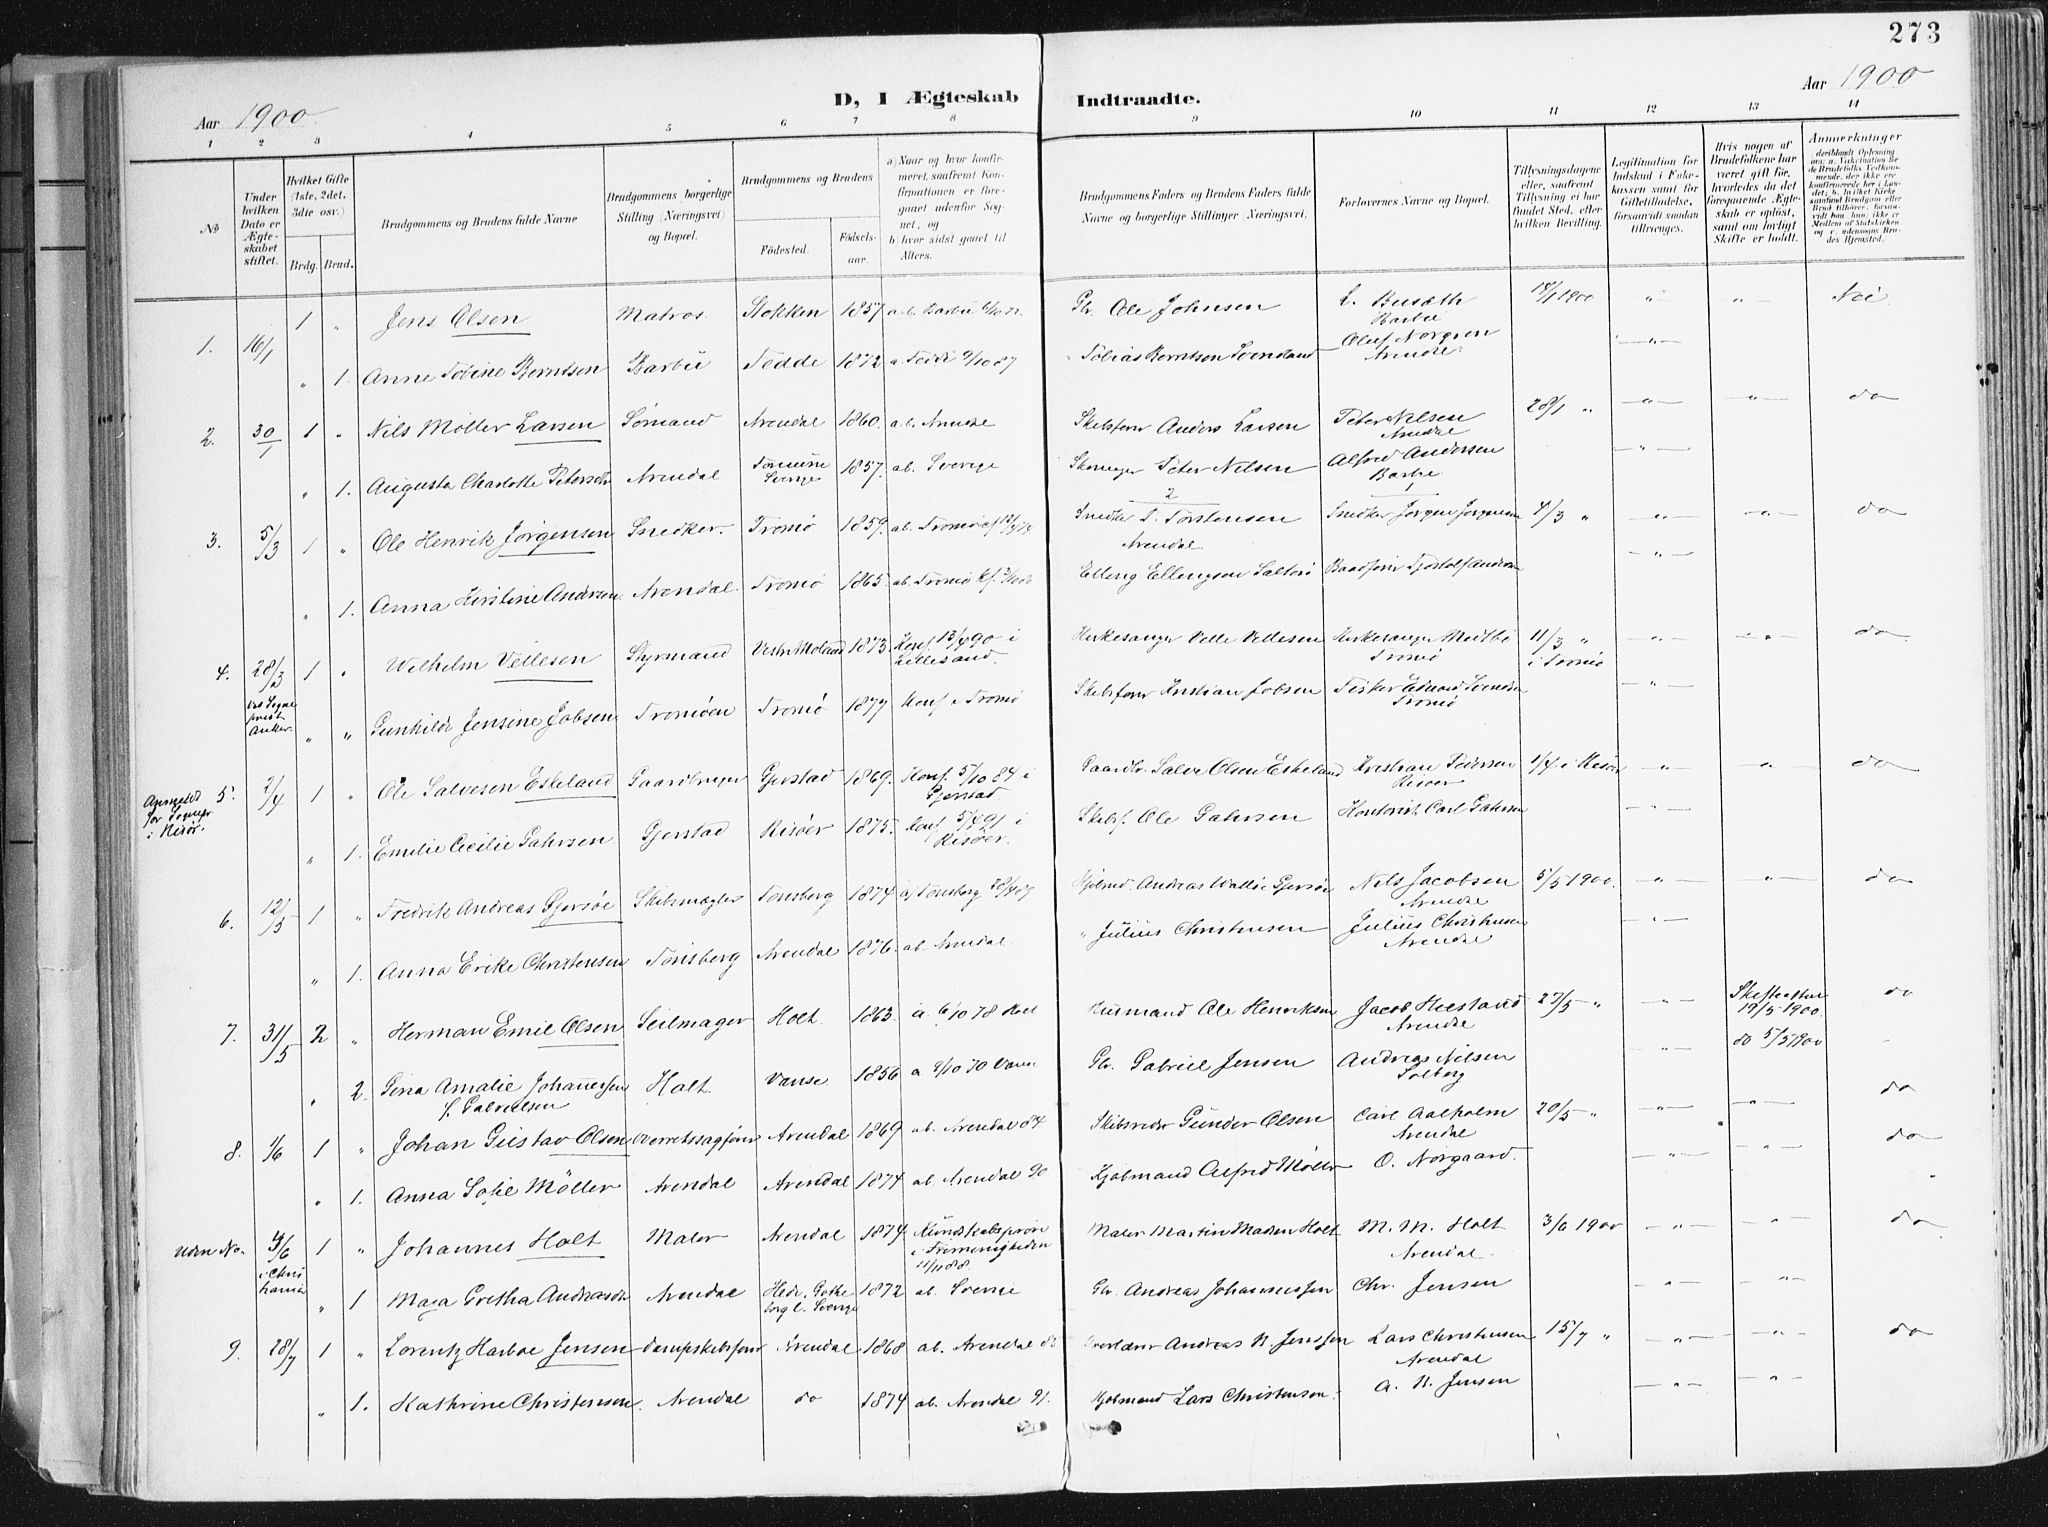 273
Aar 1900
D, I Ægteskab Indtraadte.
Aar 1900
1 2 3 4 5 6 7 8 9 10 11 12 13 14
№
Under hvilken Dato er Ægteskabet stiftet.
Hvilket Gifte (1ste, 2det, 3die osv.)
Brdg. Brud.
Brudgommens og Brudens fulde Navne
Brudgommens borgerlige Stilling (Næringsvei) og Bopæl.
Brudgommens og Brudens
Fødested. Fødselsaar.
a) Naar og hvor konfirmeret, saafremt Konfirmationen er foregaaet udenfor Sognet, og
b) hvor sidst gaaet til Alters.
Brudgommens Faders og Brudens Faders fulde Navne og borgerlige Stillinger (Næringsvei).
Forlovernes Navne og Bopæl.
Tillysningsdagene eller, saafremt Tillysning ei har fundet Sted, efter hvilken Bevilling.
Legitimation for Indskud i Enkekassen samt for Giftetilladelse, forsaavidt saadan tiltrænges.
Hvis nogen af Brudefolkene har været gift før, hvorledes da det foregaaende Ægteskab er opløst, samt om lovligt Skifte er holdt.
Anmerkninger
1. 16/1 1 " Jens Olsen Matros Stokken 1857 Gbr. Ole Johnsen L. Busæth Barbu 14/1 1900 " " Nei
" 1. Anne Tobine Berntsen Barbu Fedde 1872 " Tobias Berntsen Svendland Oluf Norgren Arendal "
2. 30/1 1 " Nils Møller Larsen Sømand Arendal 1860. ab. Arendal Skibsfører Anders Larsen Peter Nilsen Arendal 28/1 " " " do
" 1. Augusta Charlotte Petersdtr Arendal Sverige 1857. ab. Sverige Peter Nilsen Alfred Andersen Barbu "
3. 5/3 1 " Ole Henrik Jörgensen Snedker. Tromø 1859. Snedker T. Torstensen Arendal Snedker Jørgen Jørgensen 4/3 " " " do
" 1. Anna Kirstine Andersen Arendal. Tromø 1865. Elling Ellingsen Salterö Baadfører "
4. 28/3 1 " Wilhelm Vellesen Styrmand Vestre Moland 1873. Konf. 13/4 90 i Lillesand. Kirkesanger Velle Vellesen Kirkesanger Tromø 11/3 " i Tromø " " do
ved Sogneprest Anker.
" " Gunhilde Jensine Jobsen Tromøen Tromø 1877 Konf. i Tromø Skibsfører Kristian Jobsen Fisker Edvard Svendsen Tromø "
Anmeldt for Sognepr i Risør.
5. 2/4 1 " Ole Salvesen Eskeland Gaardbruger Gjerstad 1869. Konf. 5/10 84 i Gjerstad. Gaardbr. Salve Olsen Eskeland Kristian Pedersen Risøer 1/4 i Risør " " do
" 1. Emilie Cecilie Gahrsen Gjerstad Risøer 1875. Konf. 5/4 91 i Risøer. Skibsf. Ole Gahrsen Kontorist Carl Gahrsen "
6. 12/5 1 " Fredrik Andreas Gjersöe Skibsmægler Tønsberg 1874 Andreas Wallöe Gjersöe Nils Jacobsen Arendal 5/5 1900. " " do
" 1. Anna Erike Christensen Tönsberg Arendal 1876. ab. Arendal. " Julius Christensen Julius Christensen Arendal "
7. 31/5 2 " Herman Emil Olsen Seilmager Holt. 1863. a. 6/10 78 Holt Husmand Ole Henriksen Jacob Arendal 27/5 " " 19/5 1900. do
" 2. Gina Amalie Johannessen f. Gabrielsen Holt. Vanse 1856 a 9/10 70 Vanse Gbr. Gabriel Jensen Andreas Nilsen Solberg " do 5/5 1900
8. 1/6 1 " Johan Gustav Olsen Overretssagfører Arendal 1869 ab. Arendal 84 Skibsreder Gunder Olsen Carl Aalholm Arendal 20/5 " " " do
" 1. Anna Sofie Möller Arendal Arendal 1874 ab. Arendal 90 Kjøbmand Alfred Møller O. Norgaard. " " do
uden No. 4/6 i Christiania 1 " Johannes Holt Maler Arendal 1874. Kundskabsprøve i Frimenigheden 11/11 88. Maler Martin Madsen Holt M. M. Holt Arendal. 3/6 1900 " " do
" 1 Maja Gretha Andreasdtr Arendal Sverige 1872 ab. Sverige Gbr. Andreas Johannessen Chr. Jensen " "
9. 28/7 1 " Lorentz Harboe Jensen Dampskibsfører Arendal 1868 ab. Arendal 83 Andreas N. Jenssen Lars Christensen Arendal 15/7 " " " do
" 1. Kathrine Christensen. Arendal do 1874 ab. Arendal 91. Kjøbmand Lars Christensen. A. N. Jensen " "